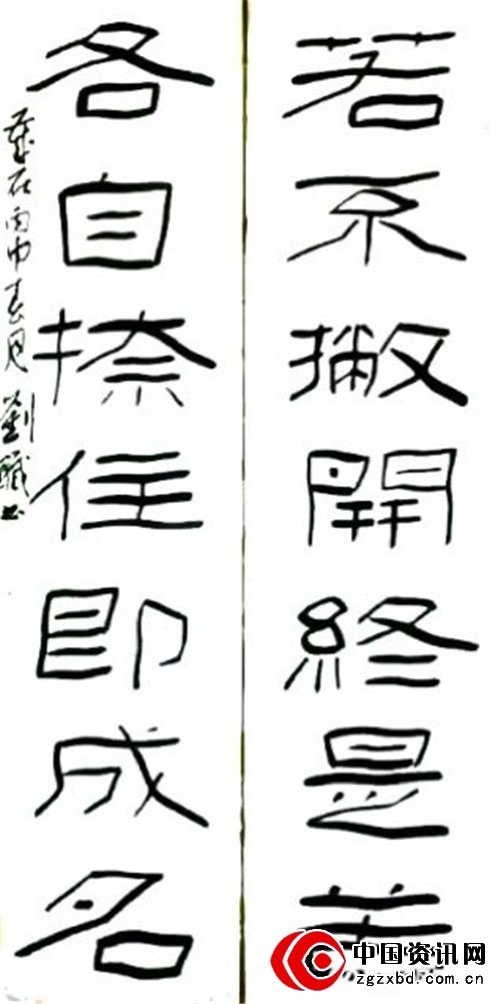 若不撇開終是苦
各自捺住即成名
歲在丙申春月劉
中国资讯网
zgzxbd.com.cn